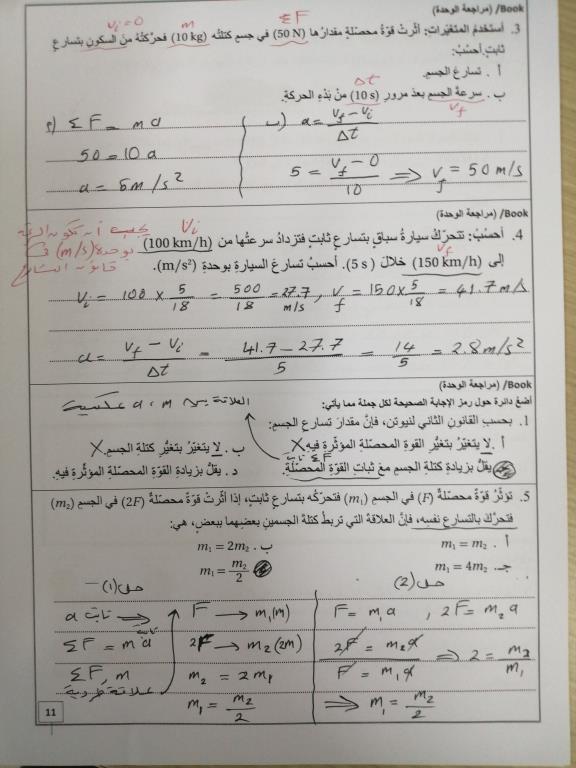 Book/ (مراجعة الوحدة)
vᵢ=0 m ΣF
3. أستخدم المتغيّرات: أثّرتْ قوّةٌ محصّلةٌ مقدارُها (50 N) في جسمٍ كتلتُه (10 kg) فحرّكتْهُ منَ السكونِ بتسارعٍ
ثابتٍ. أحسُبُ:
أ . تسارعَ الجسمِ.
Δt
ب. سرعةَ الجسمِ بعدَ مرورِ (10 s) منْ بَدْءِ الحركةِ.
v_f
أ) ΣF = ma
50 = 10 a
a = 5 m/s²
ب) a = (v_f − vᵢ)/Δt
5 = (v_f − 0)/10 ⟹ v_f = 50 m/s
Book/ (مراجعة الوحدة)
vᵢ
4. أحسُبُ: تتحرّكُ سيارةُ سباقٍ بتسارعٍ ثابتٍ فتزدادُ سرعتُها من (100 km/h)
v_f
إلى (150 km/h) خلالَ (5 s). أحسبُ تسارعَ السيارةِ بوحدةِ (m/s²).
يجب أن تكون السرعة
بوحدة (m/s) في
قانون التسارع
vᵢ = 100 × 5/18 = 500/18 = 27.7 m/s , v_f = 150 × 5/18 = 41.7 m/s
a = (v_f − vᵢ)/Δt = (41.7 − 27.7)/5 = 14/5 = 2.8 m/s²
Book/ (مراجعة الوحدة)
أضعُ دائرةً حول رمزِ الإجابةِ الصحيحةِ لكلِّ جملةٍ مما يأتي:
العلاقة بين a ، m عكسية
1. بحسبِ القانونِ الثاني لنيوتن، فإنَّ مقدارَ تسارعِ الجسمِ:
أ . لا يتغيّرُ بتغيُّرِ القوةِ المحصّلةِ المؤثّرةِ فيهِ. X
ب. لا يتغيّرُ بتغيُّرِ كتلةِ الجسمِ. X
ΣF ثابت
يقلُّ بزيادةِ كتلةِ الجسمِ معَ ثباتِ القوّةِ المحصّلةِ.
د . يقلُّ بزيادةِ القوّةِ المحصّلةِ المؤثّرةِ فيهِ.
5. تؤثّرُ قوّةٌ محصلةٌ (F) في الجسمِ (m₁) فتحرّكُه بتسارعٍ ثابتٍ، إذا أثّرتْ قوّةٌ محصلةٌ (2F) في الجسمِ (m₂)
فتحرّكَ بالتسارعِ نفسِه، فإنَّ العلاقةَ التي تربطُ كتلةَ الجسمينِ بعضِهما ببعضٍ، هي:
أ . m₁ = m₂
ب. m₁ = 2m₂
جـ. m₁ = 4m₂
m₁ = m₂/2
حل (1)
a ثابت ⟹
ΣF = m a ثابت
ΣF, m
علاقة طردية
F → m₁(m)
2F → m₂(2m)
m₂ = 2m₁
m₁ = m₂/2
حل (2)
F = m₁a , 2F = m₂a
2F/F = m₂a/m₁a ⟹ 2 = m₂/m₁
⟹ m₁ = m₂/2
11